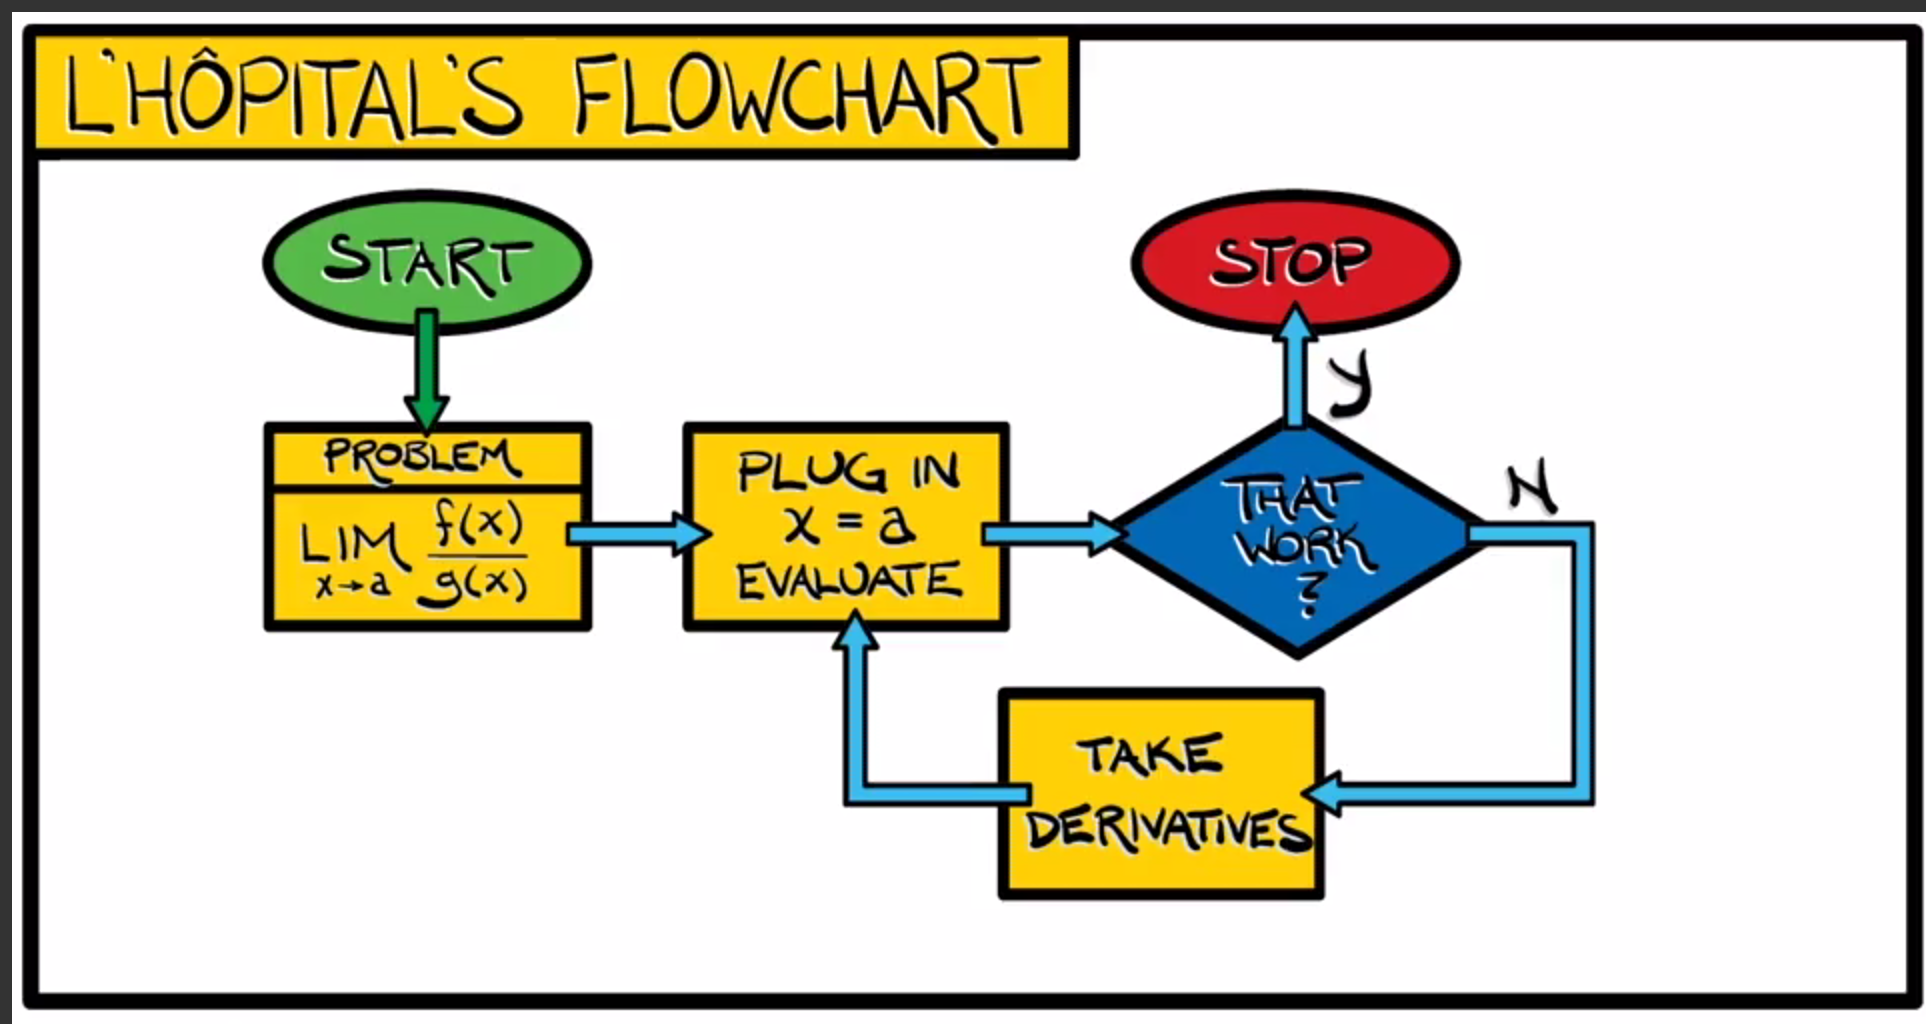 L'HÔPITAL'S FLOWCHART
START
STOP
Y
PROBLEM
LIM f(x)
x→a g(x)
PLUG IN
x = a
EVALUATE
THAT
WORK
?
N
TAKE
DERIVATIVES